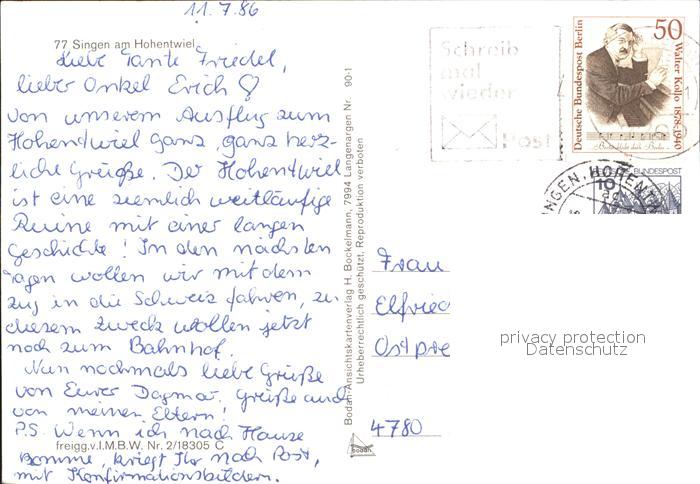 11.7.86
77 Singen am Hohentwiel
Liebe Tante Friedel,
lieber Onkel Erich
von unserem Ausflug zum
Hohentwiel ganz, ganz herz-
liche Grüße. Der Hohentwiel
ist eine ziemlich weitläufige
Ruine mit einer langen
Geschichte! In den nächsten
Tagen wollen wir mit dem
Zug in die Schweiz fahren, zu
diesem Zweck wollen jetzt
noch zum Bahnhof.
Nun nochmals liebe Grüße
von Eurer Dagmar. Grüße auch
von meinen Eltern!
P.S. Wenn ich nach Hause
freigg.v.I.M.B.W. Nr. 2/18305 C
komme, kriegt Ihr noch Post,
mit Konfirmationsbildern.
Bodan-Ansichtskartenverlag H. Bockelmann, 7994 Langenargen Nr. 90-1
Urheberrechtlich geschützt, Reproduktion verboten
bodan
Schreib
mal
wieder
Post
Deutsche Bundespost Berlin
50
Walter Kollo 1878-1940
SINGEN, HOHENTW
10
BUNDESPOST
Frau
Elfried
Ostpre
4780
privacy protection
Datenschutz